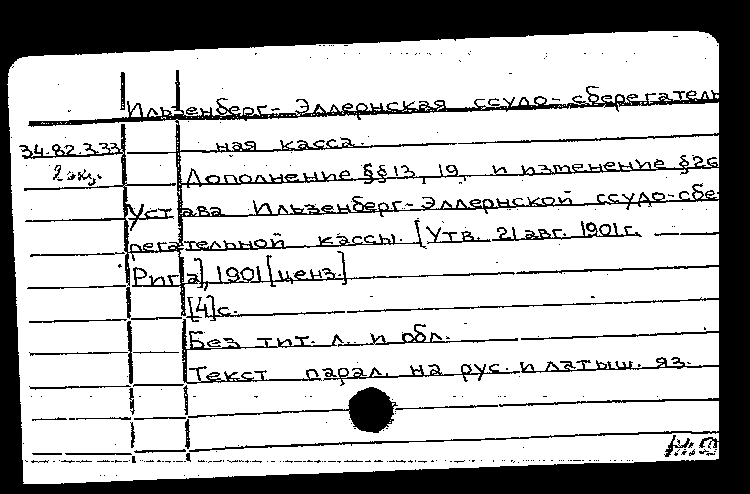 Ильзенберг-Эллернская ссудо-сберегатель
34.82.3.33 ная касса.
2 экз. Дополнение §§ 13, 19, и изменение § 26
Устава Ильзенберг-Эллернской ссудо-сбе-
регательной кассы. [Утв. 21 авг. 1901 г.
Рига], 1901 [ценз.]
[4] с.
Без тит. л. и обл.
Текст парал. на рус. и латыш. яз.